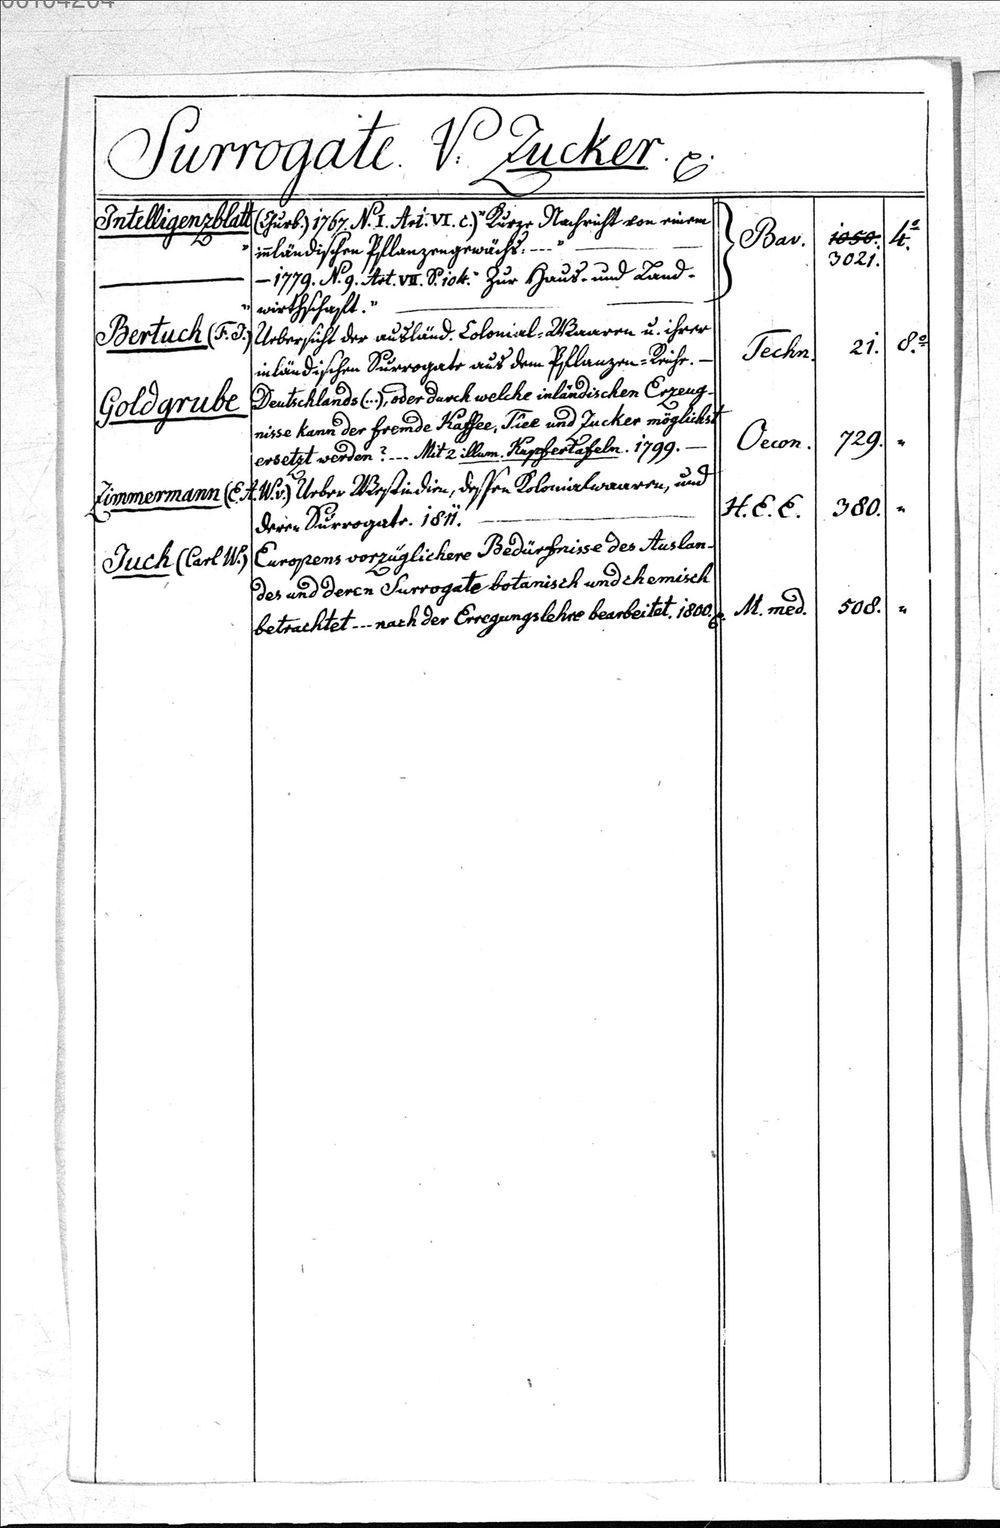 Surrogate. V. Zucker. &.
Intelligenzblatt (Churb.) 1767. N. I. Art. VI. c.) "Kurze Nachricht von einem Bav. 1050. 4.o
" inländischen Pflanzengewächs. --- " 3021.
— 1779. N. 9. Art. VII. S. 104. " Zur Haus- und Land-
" wirthschaft. "
Bertuch (F. J.) Uebersicht der ausländ. Colonial-Waaren u. ihrer
inländischen Surrogate aus dem Pflanzen-Reiche. — Techn. 21. 8.o
Goldgrube Deutschlands (...), oder durch welche inländischen Erzeug-
nisse kann der fremde Kaffee, Tiee und Zucker möglichst
ersetzt werden? --- Mit 2 illum. Kupfertafeln. 1799. — Oecon. 729. "
Zimmermann (E. A. W. v.) Ueber Westindien, dessen Kolonialwaaren, und
deren Surrogate. 1811. H. E. E. 380. "
Juch (Carl W.) Europens vorzüglichere Bedürfnisse des Auslan-
des und deren Surrogate botanisch und chemisch
betrachtet --- nach der Erregungslehre bearbeitet. 1800. &. M. med. 508. "